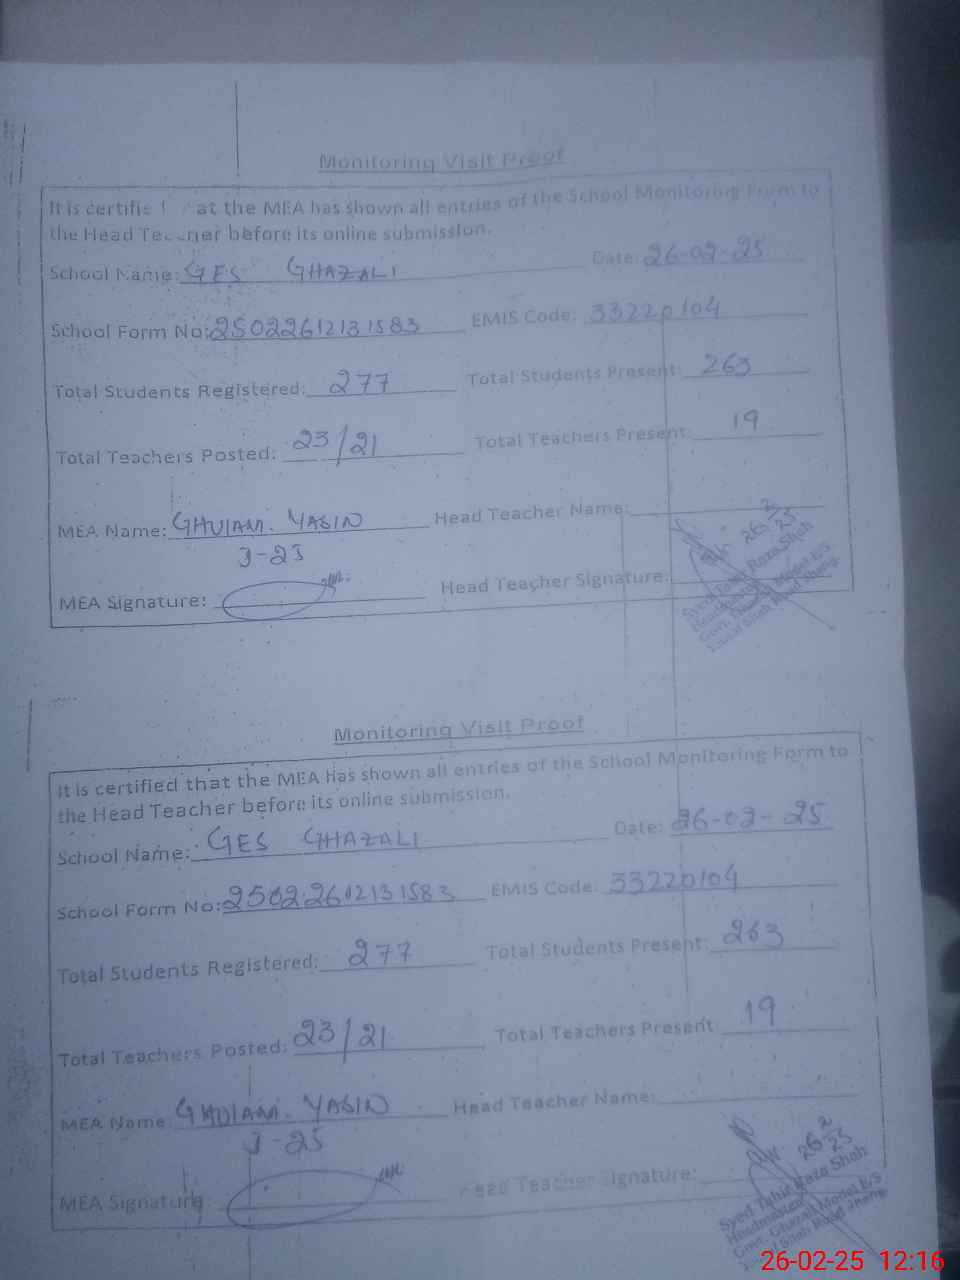 Monitoring Visit Proof
It is certifie at the MEA has shown all entries of the School Monitoring Form to
the Head Te ner before its online submission.
School Name: GES GHAZALI Date: 26-02-25
School Form No: 25022612131583 EMIS Code: 33220104
Total Students Registered: 277 Total Students Present: 263
Total Teachers Posted: 23/21 Total Teachers Present: 19
MEA Name: GHULAM. YASIN Head Teacher Name:
J-23
MEA Signature: Head Teacher Signature:
26.2
25
Syed Tahir Raza Shah
Headmaster
Govt. Ghazali Model E/S
Shah Road Jhang
Monitoring Visit Proof
It is certified that the MEA has shown all entries of the School Monitoring Form to
the Head Teacher before its online submission.
School Name: GES GHAZALI Date: 26-02-25
School Form No: 25022612131583 EMIS Code: 33220104
Total Students Registered: 277 Total Students Present: 263
Total Teachers Posted: 23/21 Total Teachers Present: 19
MEA Name: GHULAM. YASIN Head Teacher Name:
J-25
MEA Signature: Head Teacher Signature:
26.2
25
Syed Tahir Raza Shah
Headmaster
Govt. Ghazali Model E/S
Shah Road Jhang
26-02-25 12:16